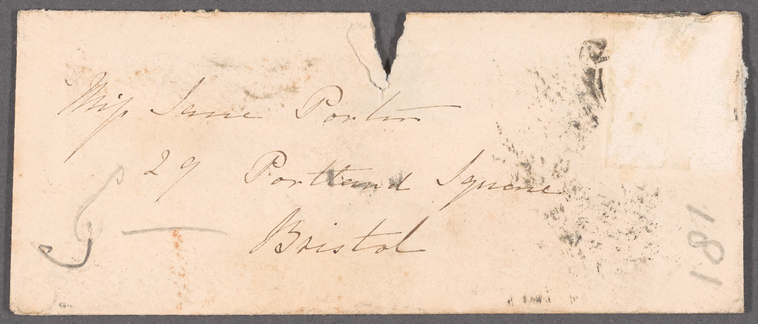 Miss Jane Porter
29 Portland Square
Bristol
181